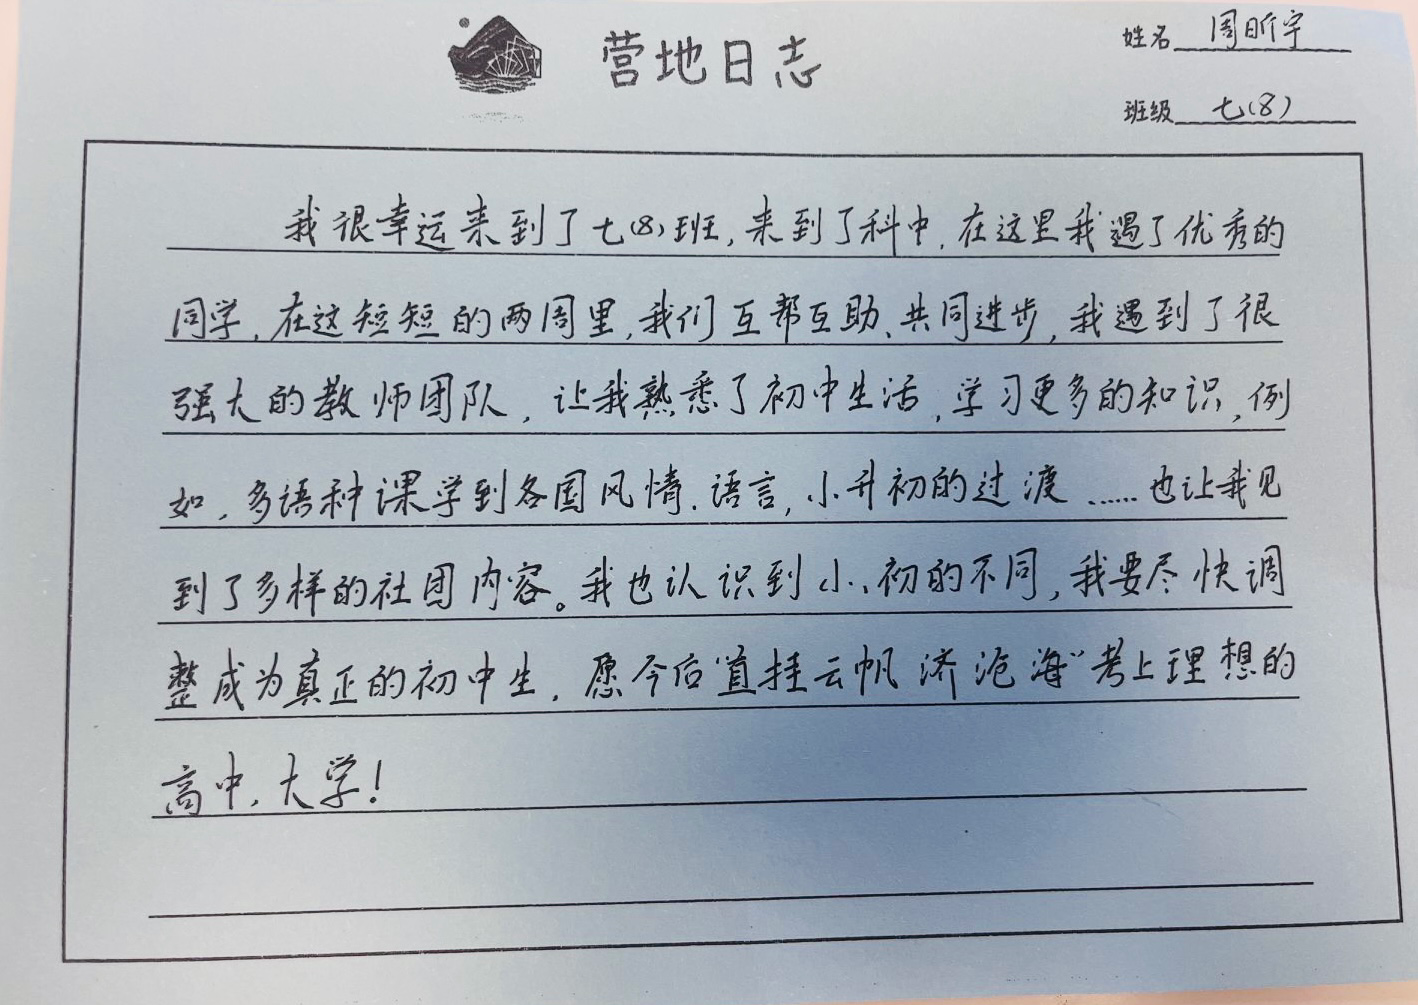 营地日志
姓名 周昕宇
班级 七(8)
我很幸运来到了七(8)班,来到了科中,在这里我遇了优秀的
同学,在这短短的两周里,我们互帮互助、共同进步,我遇到了很
强大的教师团队,让我熟悉了初中生活,学习更多的知识,例
如,多语种课学到各国风情、语言,小升初的过渡……也让我见
到了多样的社团内容。我也认识到小、初的不同,我要尽快调
整成为真正的初中生,愿今后“直挂云帆济沧海”考上理想的
高中、大学!